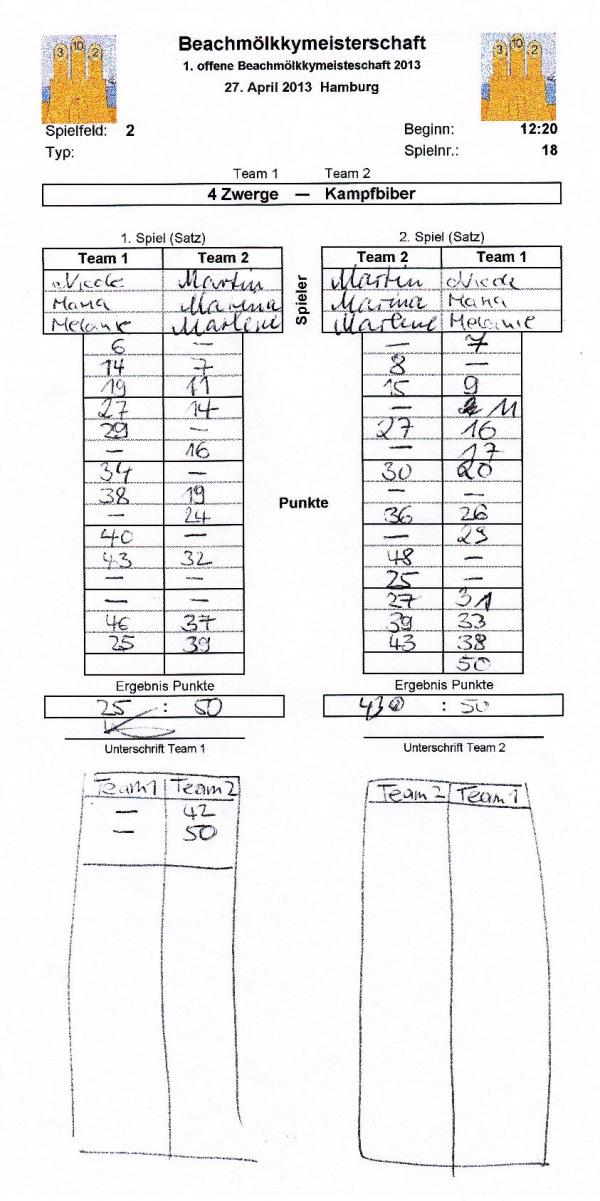 3 10 2
3 10 2
Beachmölkkymeisterschaft
1. offene Beachmölkkymeisteschaft 2013
27. April 2013 Hamburg
Spielfeld: 2 Beginn: 12:20
Typ: Spielnr.: 18
Team 1 Team 2
4 Zwerge — Kampfbiber
1. Spiel (Satz) 2. Spiel (Satz)
Team 1 Team 2 Team 2 Team 1
Nicole Martin Spieler Martin Nicole
Mana Marina Marina Mana
Melanie Marlene Marlene Melanie
6 — — 7
14 7 8 —
19 11 15 9
27 14 — 11
29 — 27 16
— 16 — 17
34 — 30 20
38 19 — —
Punkte
— 24 36 26
40 — — 29
43 32 48 —
— — 25 —
— — 27 31
46 37 39 33
25 39 43 38
50
Ergebnis Punkte Ergebnis Punkte
25 : 50 43 : 50
Unterschrift Team 1 Unterschrift Team 2
Team 1 Team 2 Team 2 Team 1
— 42
— 50